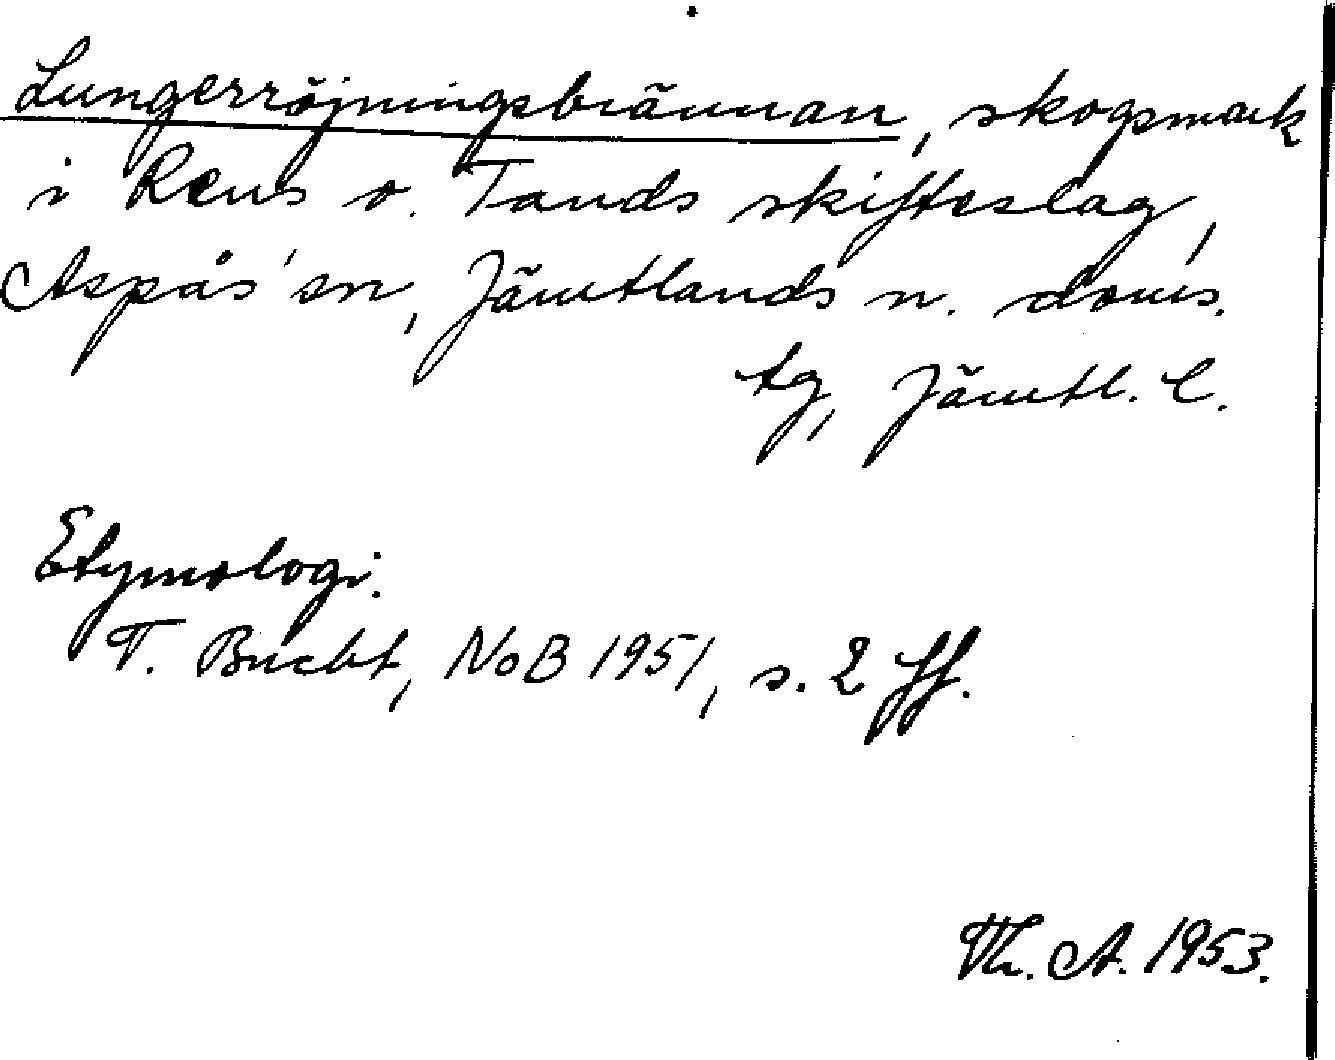 Lungerröjningsbrännan, skogsmark
i Rens o. Tands skifteslag,
Aspås sn, Jämtlands n. doms.
tg, Jämtl. l.
Etymologi.
T. Bucht, NoB 1951, s. 2 ff.
Th. A. 1953.